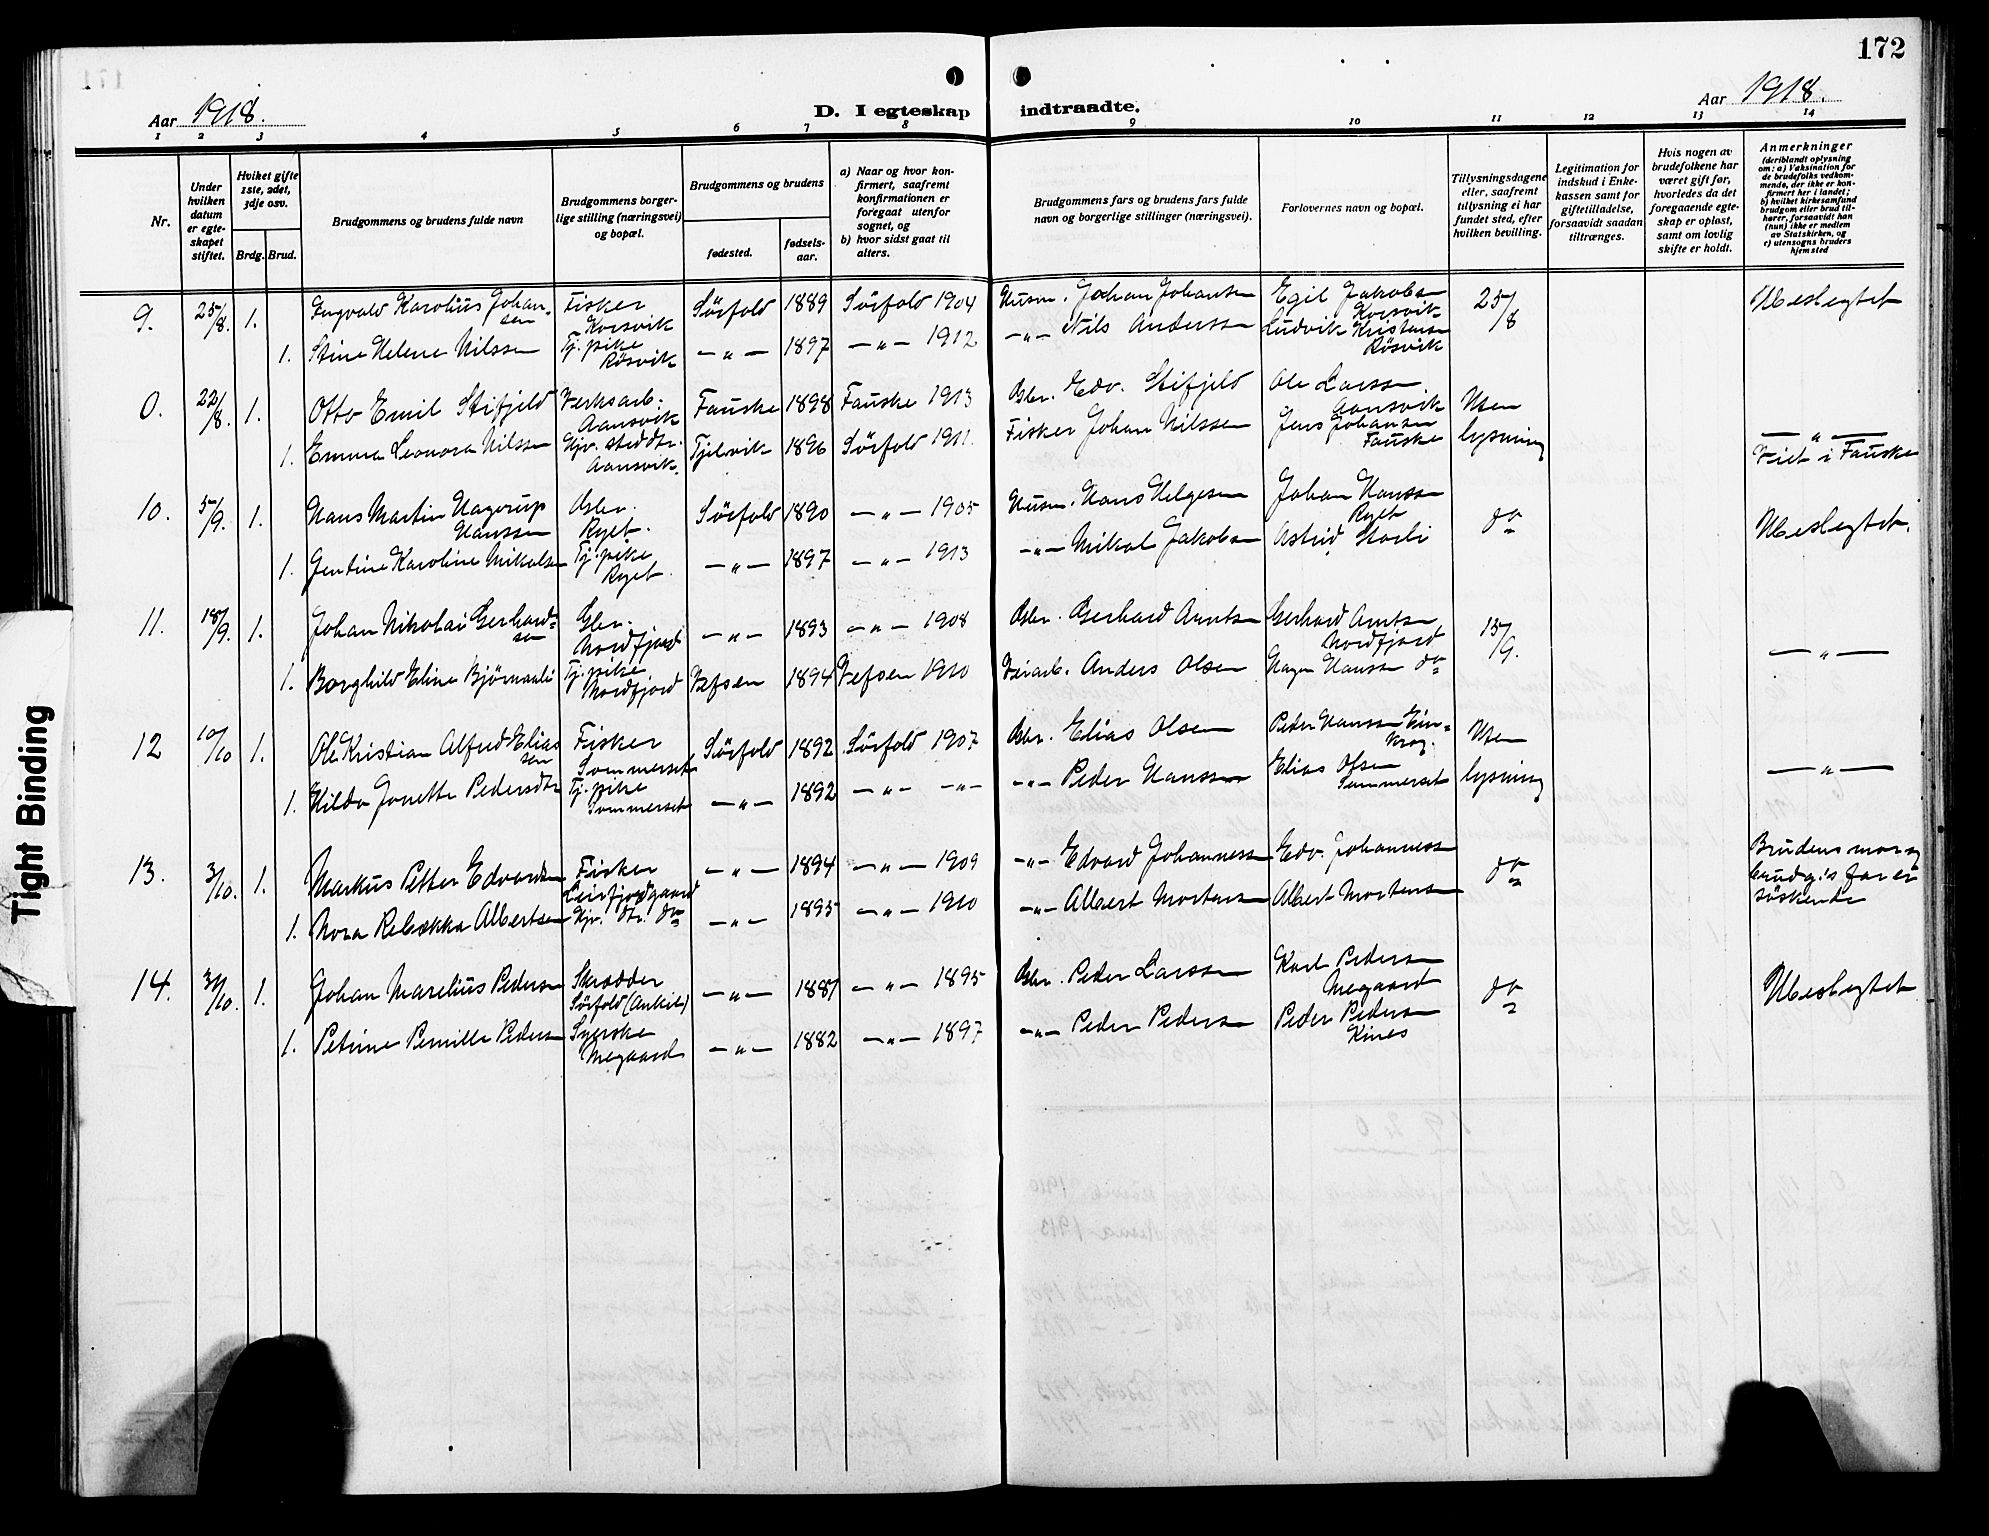 172
Aar 1918.
D. I egteskap indtraadte.
Aar 1918.
1 2 3 4 5 6 7 8 9 10 11 12 13 14
Nr.
Under hvilken datum er egteskapet stiftet.
Hviket gifte 1ste, 2det, 3dje osv.
Brdg. Brud.
Brudgommens og brudens fulde navn
Brudgommens borgerlige stilling (næringsvei) og bopæl.
Brudgommens og brudens
fødested.
fødselsaar.
a) Naar og hvor konfirmert, saafremt konfirmationen er foregaat utenfor sognet, og
b) hvor sidst gaat til alters.
Brudgommens fars og brudens fars fulde navn og borgerlige stillinger (næringsvei).
Forlovernes navn og bopæl.
Tillysningsdagene eller, saafremt tillysning ei har fundet sted, efter hvilken bevilling.
Legitimation for indskud i Enkekassen samt for giftetilladelse, forsaavidt saadan tiltrænges.
Hvis nogen av brudefolkene har været gift før, hvorledes da det foregaaende egteskap er opløst, samt om lovlig skifte er holdt.
Anmerkninger
(deriblandt oplysning om: a) Vaksination for de brudefolks vedkommende, der ikke er konfirmert her i landet; b) hvilket kirkesamfund brudgom eller brud tilhører, forsaavidt han (hun) ikke er medlem av Statskirken, og c) utensogns bruders hjemsted
9. 25/8. 1. Ingvald Karolius Johansen Fisker Korsvik Sörfold 1889 Sörfold 1904 Husm. Johan Johansen Egil Jakobsen Korsvik 25/8 Ubeslegtet
1. Stine Helene Nilssen Tj.pike Rösvik -„- 1897 -„- 1912 -„- Nils Anderssen Ludvik Kristensen Rösvik
0. 22/8. 1. Otto Emil Stifjeld Verksarb. Aansvik Fauske 1898 Fauske 1913 Gbr. Edv. Stifjeld Ole Larssen Aansvik Uten lysning -„-
1. Emma Leonora Nilssen Hjv. steddtr. Aansvik. 1896 Sörfold 1911. Fisker Johan Nilssen Jens Johansen Fauske Viet i Fauske
10. 5/9. 1. Hans Martin Hagerup Hanssen Ryet. Sörfold 1890 -„- 1905 Husm. Hans Helgesen Johan Hanssen Ryet do Ubeslegtet.
1. Jentine Karoline Mikalsen Tj.pike Ryet -„- 1897 -„- 1913 -„- Mikal Jakobsen Astrid Storli
11. 18/9. 1. Johan Nikolai Gerhardsen Nordfjord -„- 1893 -„- 1908 Gbr. Gerhard Arntsen Gerhard Arntsen Nordfjord 15/9. -„-
1. Borghild Eline Bjørnaali Tj.pike Nordfjord Vefsen 1894 Vefsen 1910 Veiarb. Anders Olsen Hagen Hanssen do
12 10/10 1. Ole Kristian Alfred Eliassen Fisker Sommerset Sörfold 1892 Sörfold 1907 Gbr. Elias Olsen Peder Hanssen Uten lysning -„-
1. Hilda Jonette Pedersdtr Tj.pike Sommerset -„- 1892 -„- -„- -„- Peder Hanssen Elias Olsen Sommerset
13. 3/10. 1. Markus Petter Edvardsen Fisker Leirfjordgaard -„- 1894 -„- 1909 -„- Edvard Johannessen Edv. Johannessen do Brudens mor og brudg's far er söskende
1. Nora Rebekka Albertsen Hjv. dtr. do -„- 1895 -„- 1910 -„- Albert Mortensen Albert Mortensen
14. 1. Johan Marelius Pedersen Skrædder Sörfold -„- 1881 -„- 1895 Gbr. Peder Larssen Karl Pedersen Megaard do Ubeslegtet
1. Petrine Pernille Pedersen Syerske Megaard -„- 1882 -„- 1897 -„- Peder Pedersen Peder Pedersen Kines
Tight Binding